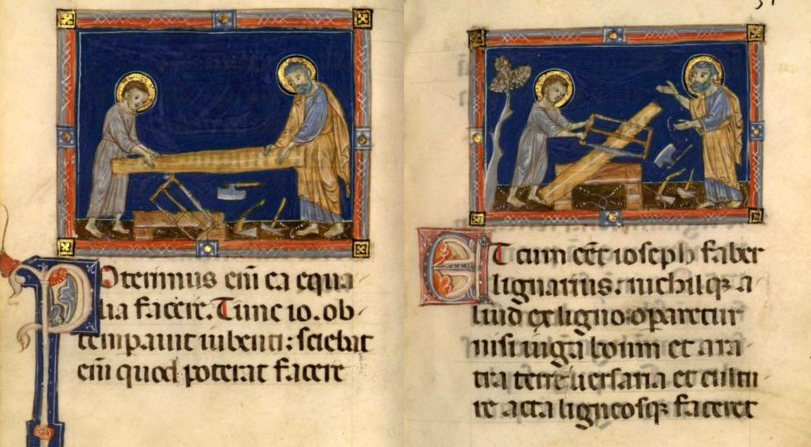 Poterimus eni ea equa
lia facere. Tunc io. ob
temperauit iubenti: sciebat
eni quod poterat facere
ET cum eet ioseph faber
lignarius: nichilq3 a
liud ex ligno operaretur
nisi iuga boum et ara
tra terre uersaria et cultu
re acta ligneosq3 faceret